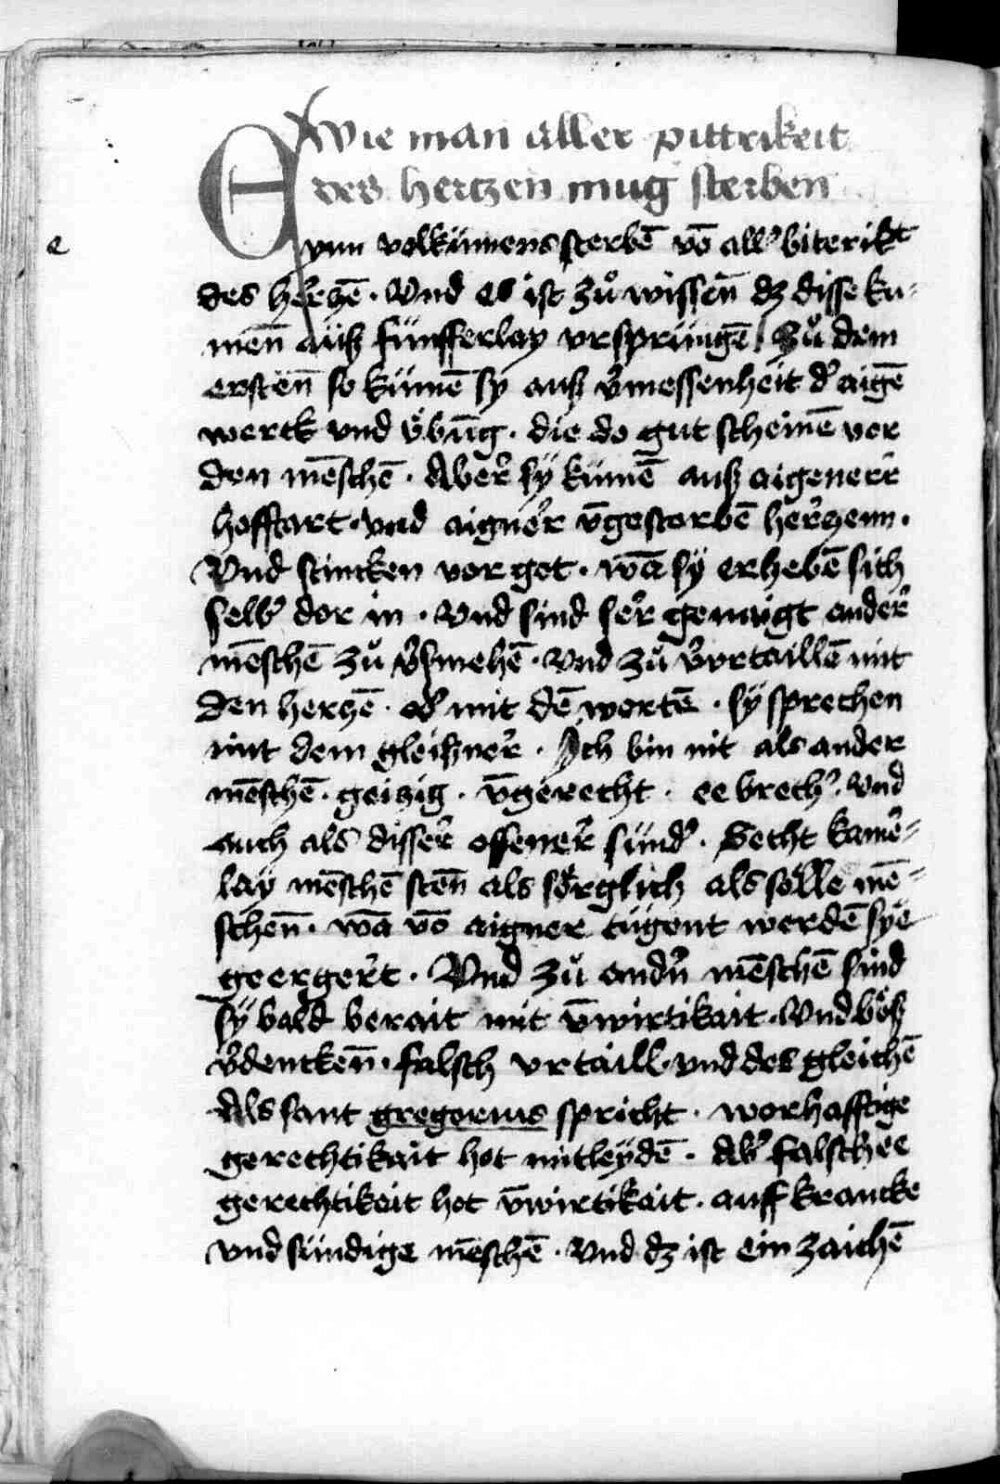 Wie man aller pittrikeit
des hertzen mug sterben
e
Eynn volkümens sterbē vō all' biterikt
des hertzē · Vnd es ist zů wissen̄ dz disse ku-
men̄ auß fünfferlay vrsprüngē / Zů dem
ersten̄ so kümē sy auß v'messenheit d' aigē
werck vnd v̈būg · die do gut scheinē vor
den mēschē · Aber sy kümē auß aigenerr
hoffart · vnd aigner v̄gestorbē hertzenn ·
Vnd stincken vor got · wā sy erhebē sich
selb' dor in · Vnd sind ser genaigt ander
mēschē zů v'smehē · Vnd zů v'vrtaillē mit
den hertzē · od' mit dē wortē · sÿ sprechen
mit dem gleißner · Ich bin nit als ander
mēschē · geitzig · v̄gerecht · ee brech' · Vnd
auch als disser offener sünd' · Secht kainer-
lay mēschē sten̄ als sörglich als sölle mē-
schen̄ · wā vō aigner tugent werdē sye
geergert · Vnd zů andn̄ mēschē sind
sÿ bald berait mit v̄wirtikait · Vnd böß
v'dencken̄ · falsch vrtaill · vnd des gleichē
Als sant gregorius spricht · worhafftige
gerechtikait hot mitleydē · Ab' falschee
gerechtikeit hot v̄wirtikait · auff krancke
vnd sündige mēschē · Vnd dz ist ein zaichē